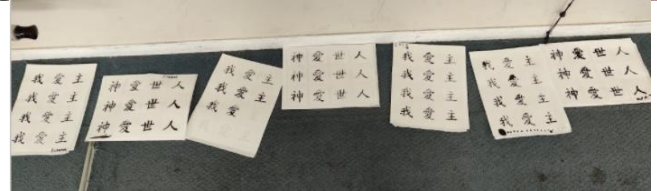 我愛主
我愛主
我愛主
我愛主
神愛世人
神愛世人
神愛世人
我愛主
我愛主
我愛
神愛世人
神愛世人
神愛世人
我愛主
我愛主
我愛主
我愛主
我愛主
我愛主
我愛主
我愛主
神愛世人
神愛世人
神愛世人